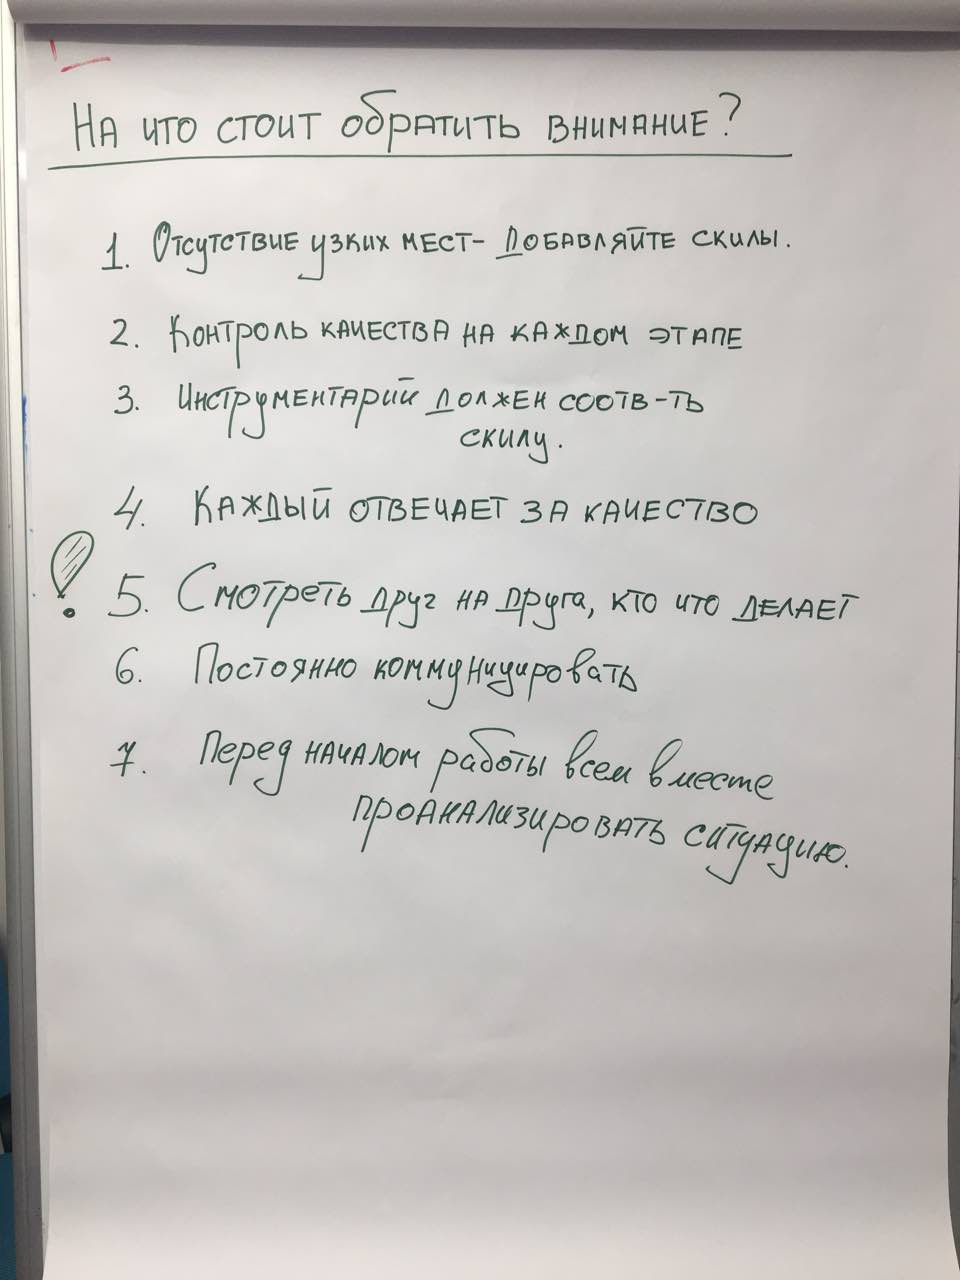 На что стоит обратить внимание?
1. Отсутствие узких мест- Добавляйте скилы.
2. Контроль качества на каждом этапе
3. Инструментарий должен соотв-ть
скилу.
4. Каждый отвечает за качество
! 5. Смотреть друг на друга, кто что делает
6. Постоянно коммуницировать
7. Перед началом работы всем вместе
проанализировать ситуацию.